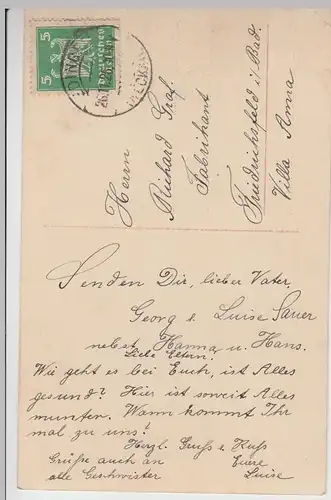 5 5
Deutsches Reich
Herrn
Richard Graf
Fabrikant
Friedrichsfeld i/ Bad.
Villa Anna
Senden Dir, lieber Vater,
Georg u. Luise Sauer
nebst Hanna u. Hans.
Liebe Eltern!
Wie geht es bei Euch, ist Alles
gesund? Hier ist soweit Alles
munter. Wann kommt Ihr
mal zu uns?
Herzl. Gruß u. Kuß
Grüße auch an Eure
alle Geschwister Luise